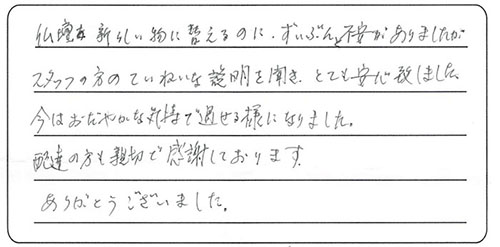 仏壇を新しい物に替えるのに、ずいぶん不安がありましたが
スタッフの方のていねいな説明を聞き、とても安心致しました
今はおだやかな気持で過せる様になりました。
配達の方も親切で感謝しております。
ありがとうございました。